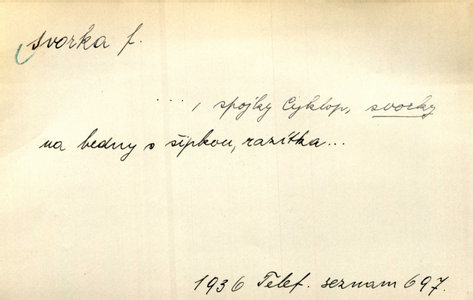 svorka f.
...., spojky Cyklop, svorky
na bedny s šipkou, razítka...
1936 Telef. seznam 697.